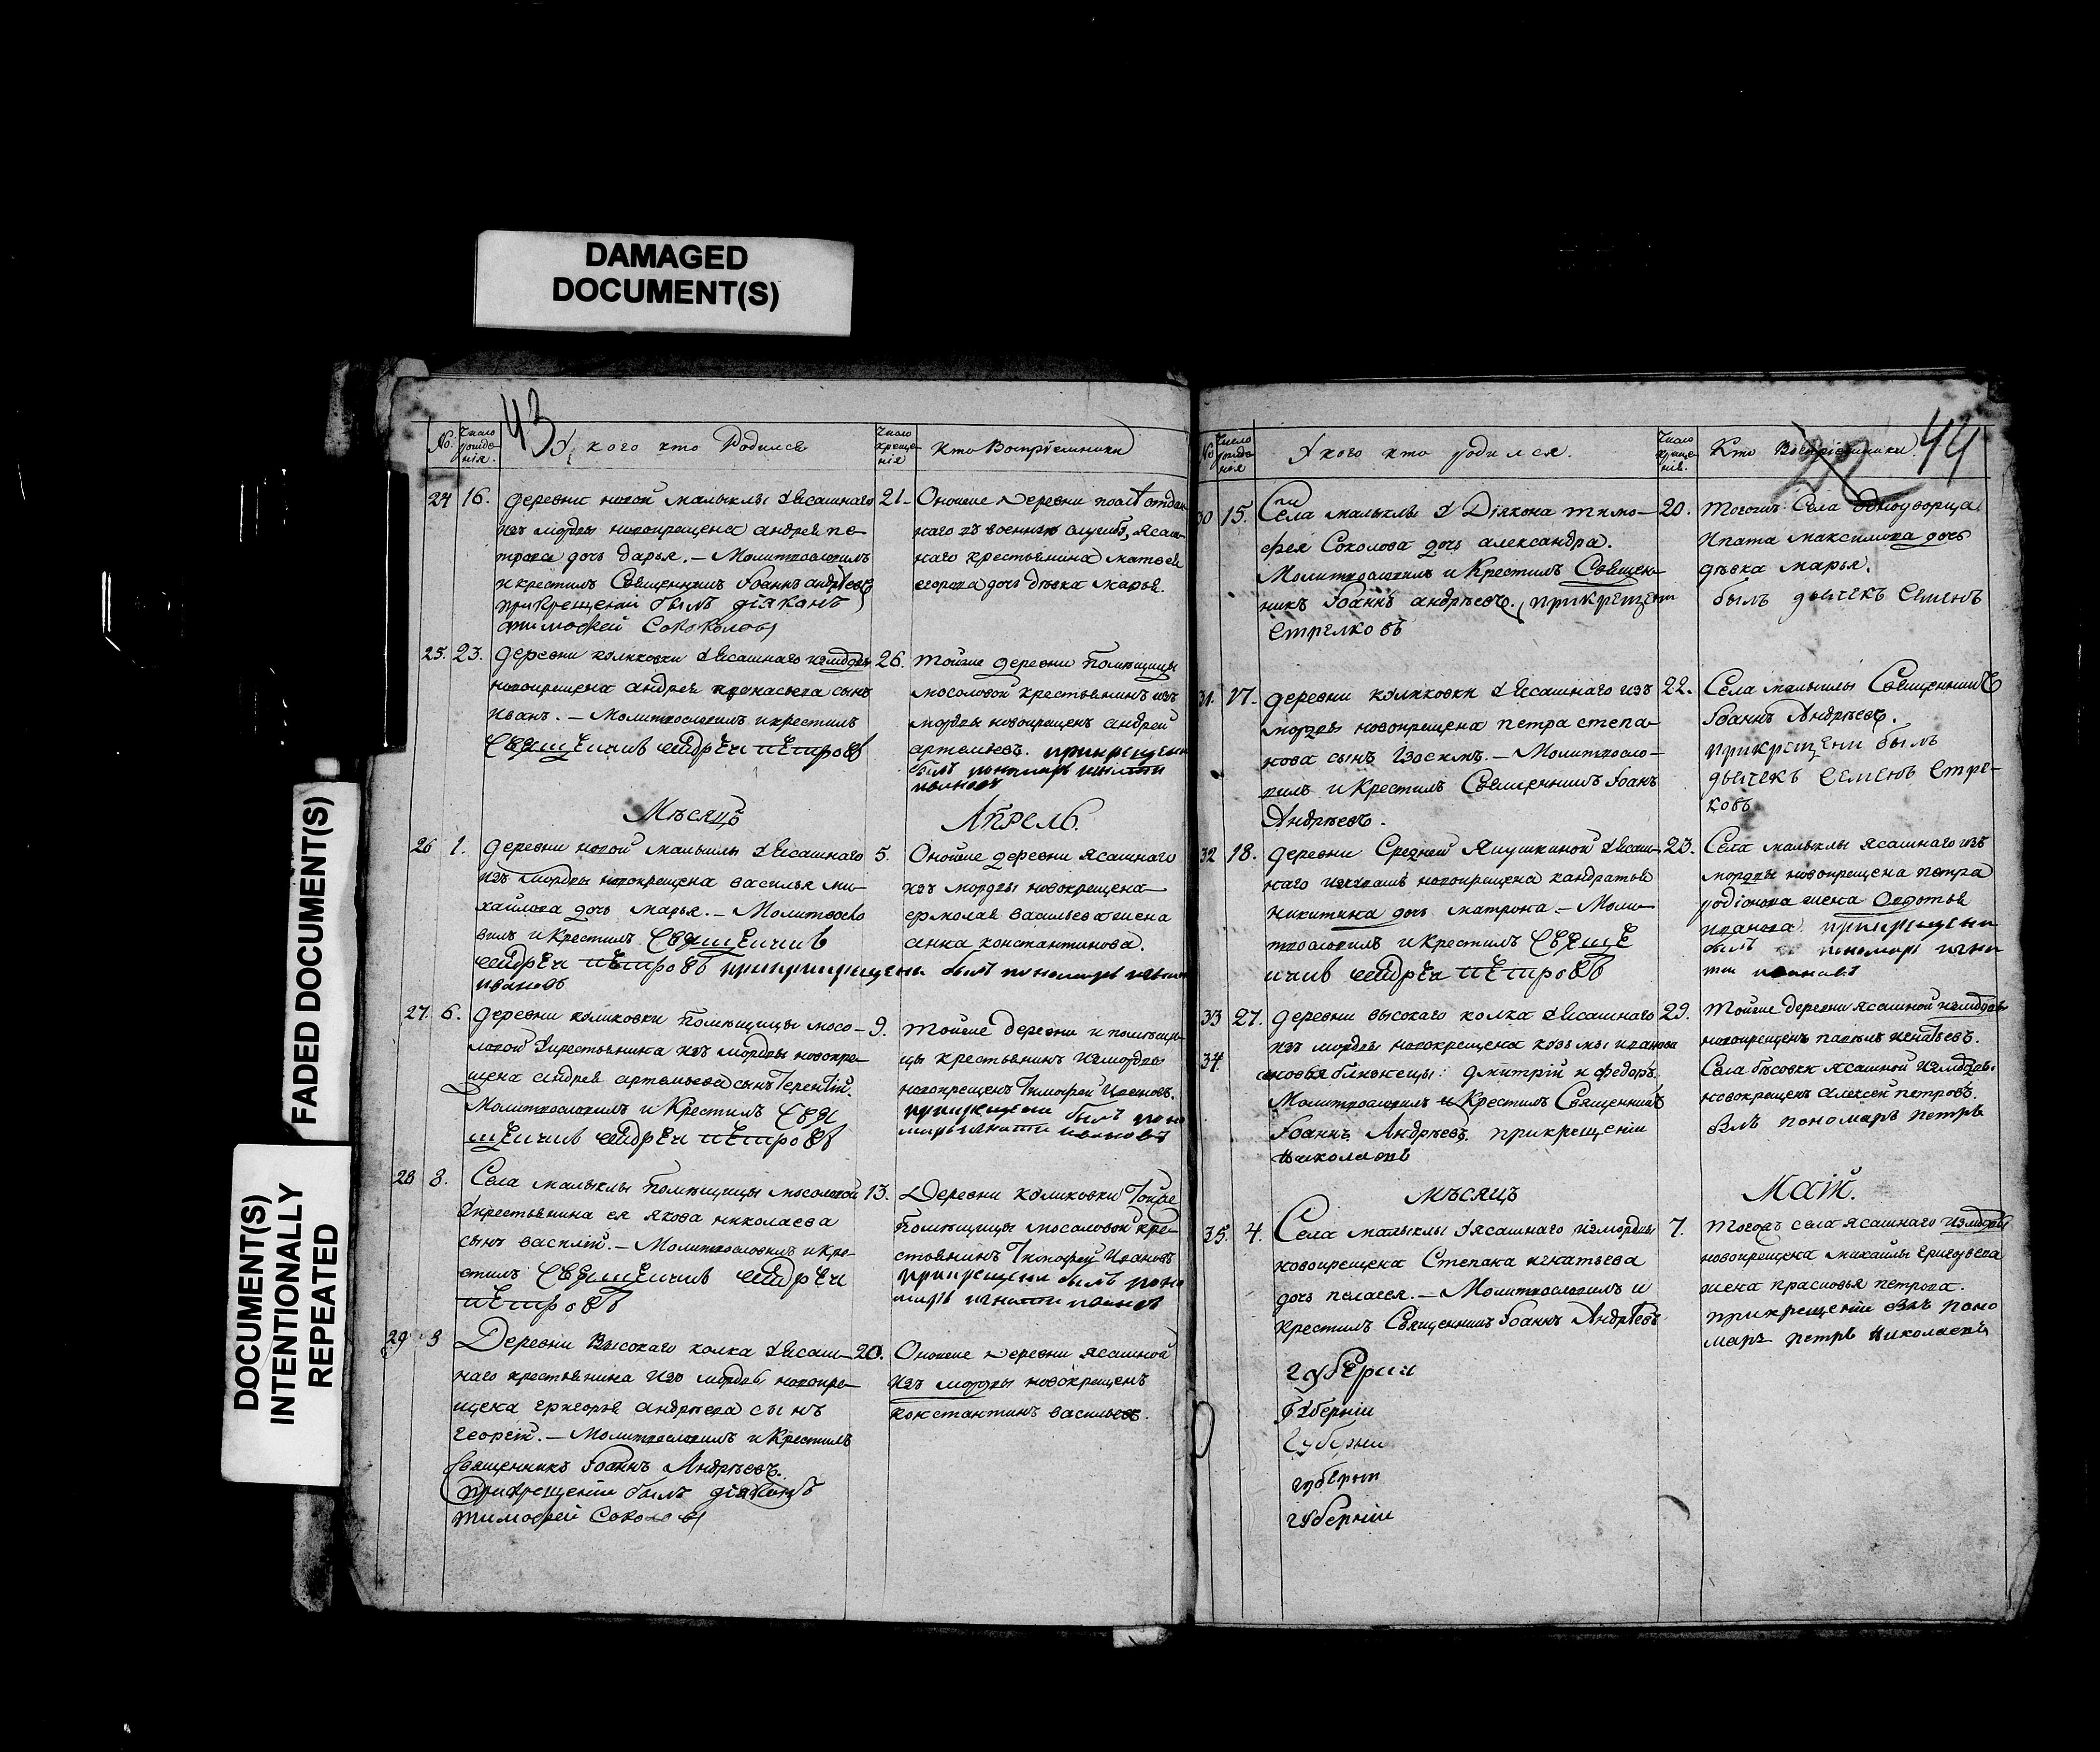 DAMAGED
DOCUMENT(S)
FADED DOCUMENT(S)
DOCUMENT(S)
INTENTIONALLY
REPEATED
43
№ Число рожде-нія. У кого кто Родился Число креще-нія Кто Воспріемники
24 16. деревни новой малыклы у Ясашнаго
изъ мордвы новокрещена андрея пе-
трова дочь дарья. — Молитвословилъ
и крестилъ Священникъ Іоаннъ андрѣевъ
прикрещеніи былъ діяконъ
тимофей Соколовъ
21. Оноиже деревни
наго въ военную службу, ясаш-
наго крестьянина матвея
егорова дочь дѣвка марья.
25. 23. деревни куликовки у Ясашнаго измордвы
новокрещена андрея сынъ
Иванъ. — Молитвословилъ и крестилъ
Священникъ андрей петровъ
26. тойже деревни Помѣщицы
мосоловой крестьянинъ изъ
мордвы новокрещенъ андрей
артемьевъ. прикрещени
былъ пономарь игнати
ивановъ
Мѣсяцъ Апрель.
26 1. деревни новой малыклы у Ясашнаго
изъ мордвы новокрещена василья ми-
хайлова дочь марья. — Молитвосло
вилъ и Крестилъ Священникъ
андрей петровъ былъ пономарь
ивановъ
5. Онойже деревни ясашнаго
изъ мордвы новокрещена
ермолая васильева жена
анна константинова.
27. 6. деревни куликовки Помѣщицы мосо-
ловой у крестьянина изъ мордвы новокре-
щена андрея артемьева сынъ Терентій.
Молитвословилъ и Крестилъ Свя
щенникъ андрей петровъ
9. тойже деревни и помѣщи-
цы крестьянинъ измордвы
новокрещенъ Тимофей Ивановъ.
прикрещени былъ поно
марь игнати ивановъ
28 8. Села малыклы Помѣщицы мосоловой
у крестьянина ея якова николаева
сынъ василій. — Молитвословилъ и кре-
стилъ Священникъ андрей
петровъ
13. Деревни куликовки Тойже
Помѣщицы мосоловой кре-
стьянинъ Тимофей Ивановъ
прикрещени былъ поно
марь игнати ивановъ
29 9 Деревни Высокаго колка у Ясаш-
наго крестьянина изъ мордвы новокре-
щена григорья андрѣева сынъ
георгій. — Молитвословилъ и Крестилъ
Священникъ Іоаннъ Андрѣевъ.
прикрещеніи былъ діяконъ
тимофей Соколовъ
20. Онойже деревни ясашной
изъ мордвы новокрещенъ
константинъ васильевъ.
44
№ Число рожде-нія У кого кто родился. Число креще-нія. Кто Воспріемники.
30 15. Села малыклы у Діякона тимо-
фея Соколова дочь александра.
Молитвословилъ и Крестилъ Священ-
никъ Іоаннъ андрѣевъ. прикрещени
Стрелковъ
20. тогожъ Села однодворца
Ипата максимова дочь
дѣвка марья.
былъ дьячекъ Семенъ
31. 17. деревни куликовки у Ясашнаго изъ
мордвы новокрещена петра степа-
нова сынъ Іоакимъ. — Молитвосло-
вилъ и Крестилъ Священникъ Іоанъ
Андрѣевъ.
22. Села малыклы Священникъ
Іоаннъ Андрѣевъ.
прикрещени былъ
дьячекъ Семенъ Стре-
ковъ
32 18. деревни Средней Якушкиной у Ясаш-
наго новокрещена кандратья
никитина дочь матрона. — Моли-
твословилъ и Крестилъ Свяще
нникъ андрей петровъ
23. Села малыклы ясашнаго изъ
мордвы новокрещена петра
родіонова жена Авдотья
иванова прикрещени
былъ пономарь игна
ти ивановъ
33 27. деревни высокаго колка у Ясашнаго
изъ мордвы новокрещена козьмы иванова
34. близнецы: дмитрій и федоръ.
Молитвословилъ и Крестилъ Священникъ
Іоаннъ Андрѣевъ. прикрещеніи
Николаевъ
29. тойже деревни ясашной измордвы
новокрещенъ павелъ игнатьевъ.
Села бѣсовки ясашной измордвы
новокрещенъ Алексей петровъ.
былъ пономарь петръ
мѣсяцъ Маій.
35. 4. Села малыклы у ясашнаго измордвы
новокрещена Степана игнатьева
дочь пелагея. — Молитвословилъ и
Крестилъ Священникъ Іоаннъ Андрѣевъ
7. тогожъ села ясашнаго измордвы
новокрещена михайлы григорьева
жена прасковья петрова.
прикрещеніи былъ поно
марь петръ Николаевъ
губерніи
Губерніи
губерни
губерни
губерніи